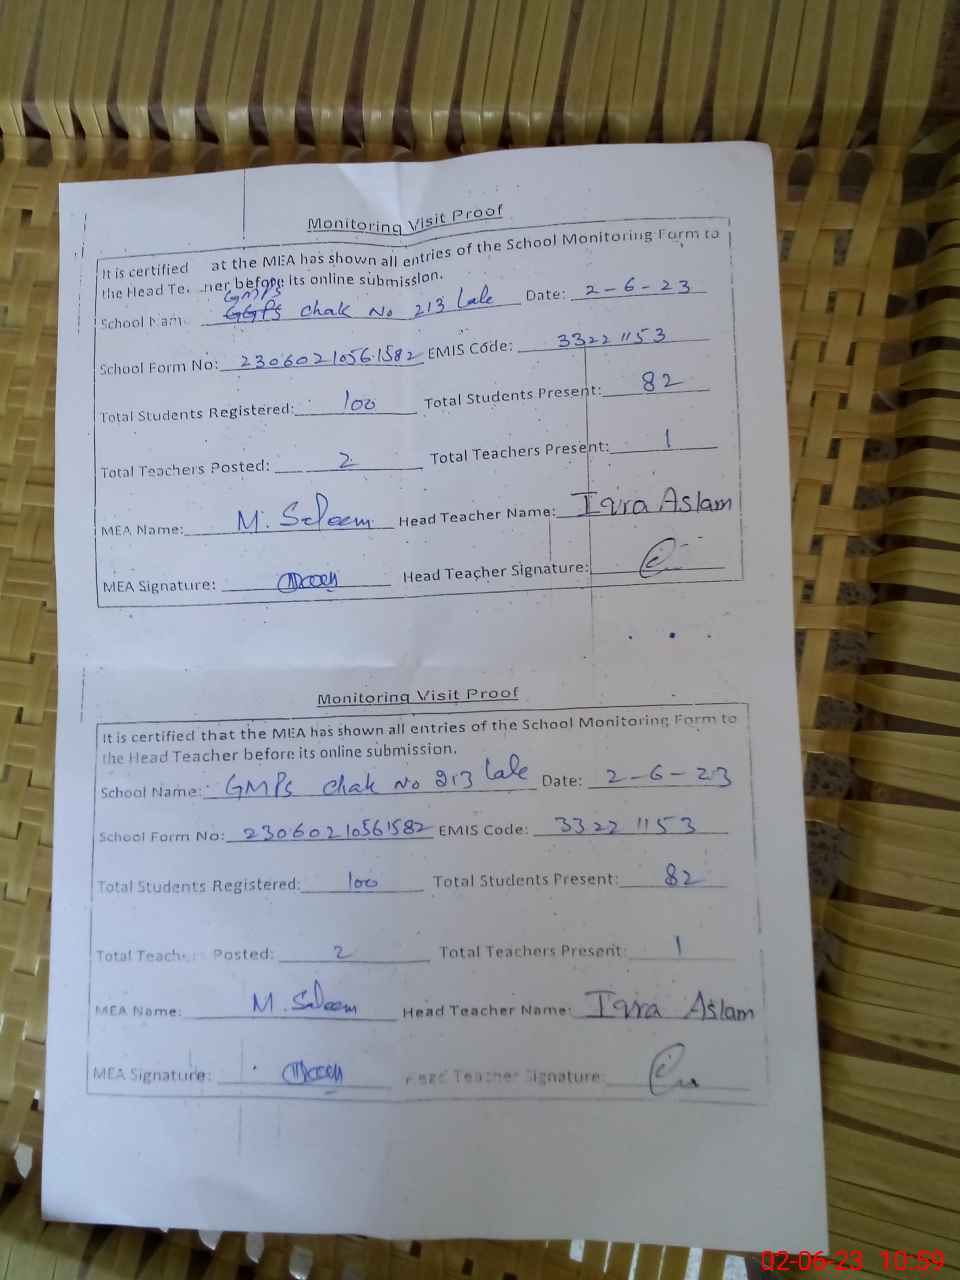 Monitoring Visit Proof
It is certified at the MEA has shown all entries of the School Monitoring Form to
the Head Te. ner before its online submission.
GMPS
School Nam GGPS chak No 213 Lale Date: 2-6-23
School Form No: 23060210561582 EMIS Code: 33221153
Total Students Registered: 100 Total Students Present: 82
Total Teachers Posted: 2 Total Teachers Present: 1
MEA Name: M. Saleem Head Teacher Name: Iqra Aslam
MEA Signature: Head Teacher Signature:
Monitoring Visit Proof
It is certified that the MEA has shown all entries of the School Monitoring Form to
the Head Teacher before its online submission.
School Name: GMPS chak No 213 Lale Date: 2-6-23
School Form No: 23060210561582 EMIS Code: 33221153
Total Students Registered: 100 Total Students Present: 82
Total Teachers Posted: 2 Total Teachers Present: 1
MEA Name: M. Saleem Head Teacher Name: Iqra Aslam
MEA Signature: Head Teacher Signature:
02-06-23 10:59